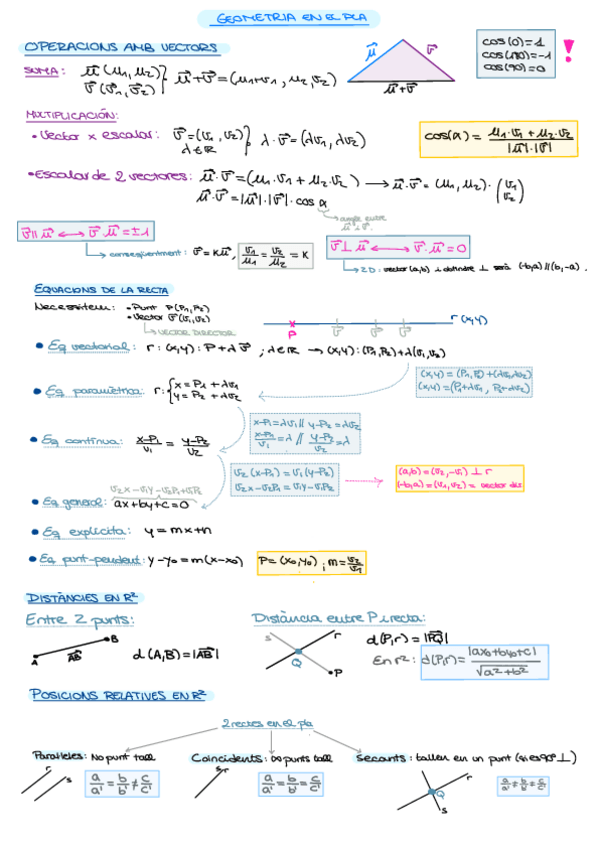 GEOMETRIA EN EL PLA
OPERACIONS AMB VECTORS
SUMA: u⃗ (u₁, u₂) } u⃗+v⃗ = (u₁+v₁, u₂, v₂)
v⃗ (v⃗₁, v⃗₂)
u⃗ v⃗
u⃗+v⃗
cos(0)=1
cos(180)=-1
cos(90)=0
!
MULTIPLICACIÓN:
• Vector x escalar: v⃗=(v₁, v₂) } λ·v⃗=(λv₁, λv₂)
λ∈ℝ
cos(α) = u₁·v₁+u₂·v₂ / |u⃗|·|v⃗|
• Escalar de 2 vectores: u⃗·v⃗=(u₁·v₁+u₂·v₂) → u⃗·v⃗=(u₁,u₂)·(v₁ v₂)
u⃗·v⃗=|u⃗|·|v⃗|·cos α
angle entre
u⃗ i v⃗.
v⃗ ∥ u⃗ ↔ v⃗·u⃗=±1
conseqüentment: v⃗=Ku⃗, v₁/u₁ = v₂/u₂ = K
v⃗ ⊥ u⃗ ↔ v⃗·u⃗=0
2D: vector (a,b) i obtindre ⊥ serà (-b,a) // (b,-a).
EQUACIONS DE LA RECTA
Necessitem: • Punt P(P₁,P₂)
• Vector v⃗(v₁,v₂)
VECTOR DIRECTOR
P v⃗ v⃗ v⃗ r (x,y)
• Eq vectorial: r: (x,y): P+λv⃗ ; λ∈ℝ → (x,y): (P₁,P₂)+λ(v₁,v₂)
(x,y) = (P₁,P₂)+(λv₁,λv₂)
(x,y)=(P₁+λv₁, P₂+λv₂)
• Eq paramètrica: r: { x=P₁+λv₁
y=P₂+λv₂
x-P₁=λv₁ // y-P₂=λv₂
x-P₁/v₁=λ // y-P₂/v₂=λ
• Eq contínua: x-P₁/v₁ = y-P₂/v₂
v₂(x-P₁)=v₁(y-P₂)
v₂x-v₂P₁=v₁y-v₁P₂
(a,b)=(v₂,-v₁) ⊥ r
(-b,a)=(v₁,v₂)= vector dir.
v₂x-v₁y-v₂P₁+v₁P₂
• Eq general: ax+by+c=0
• Eq explícita: y=mx+n
• Eq punt-pendent: y-y₀=m(x-x₀)
P=(x₀,y₀) ; m=v₂/v₁
DISTÀNCIES EN R²
Entre 2 punts:
A AB⃗ B
d(A,B)=|AB⃗|
Distància entre P i recta:
s r Q P
d(P,r)=|PQ⃗|
En r²: d(P,r)= |ax₀+by₀+c| / √a²+b²
POSICIONS RELATIVES EN R²
2 rectes en el pla
Paral·leles: No punt tall
r s
a/a' = b/b' ≠ c/c'
Coincidents: ∞ punts tall
s r
a/a' = b/b' = c/c'
Secants: tallen en un punt (si es 90° ⊥)
r Q s
a/a' ≠ b/b' ≠ c/c'